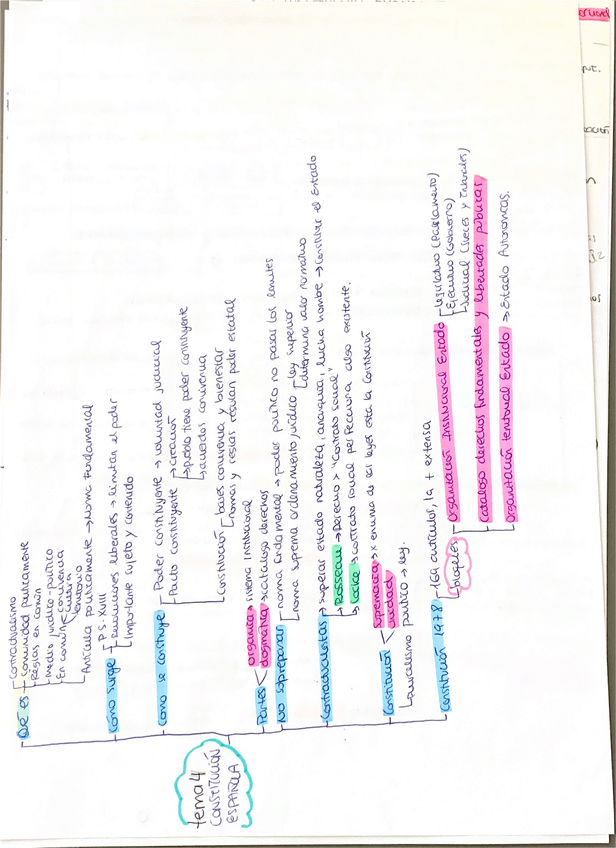 tema 4
CONSTITUCIÓN
ESPAÑOLA
Qué es
Contractualismo
Comunidad políticamente
Reglas en común
Medio jurídico-político
En común convivencia
cultura
territorio
Articula políticamente → Norma Fundamental
Cómo surge
P S. XVIII
Revoluciones liberales → limitan el poder
Importante sujeto y contenido
Cómo se construye
Poder constituyente → voluntad judicial
Pacto constituyente → creación
→ pueblo tiene poder constituyente
→ acuerdos convivencia
Constitución
bases convivencia y bienestar
normas y reglas regulan poder estatal
Partes
orgánica → sistema institucional
dogmática → catálogo derechos
No sobrepasan
norma fundamental → poder político no pasar los límites
norma suprema ordenamiento jurídico
ley superior
determina valor normativo
Contractualistas → superar estado naturaleza, anarquía, lucha hombre → Constituir el Estado
→ Rosseau → Derecho > "Contrato social"
→ Locke → contrato social perfecciona algo existente.
Constitución
supremacía → x encima de las leyes está la Constitución
unidad
→ político → ley.
Constitución 1978
169 artículos, la + extensa
bloques
Organización Institucional Estado
Legislativo (Parlamento)
Ejecutivo (Gobierno)
Judicial (Jueces y Tribunales)
Catálogo derechos fundamentales y libertades públicas
Organización territorial Estado → Estado Autonómicas.